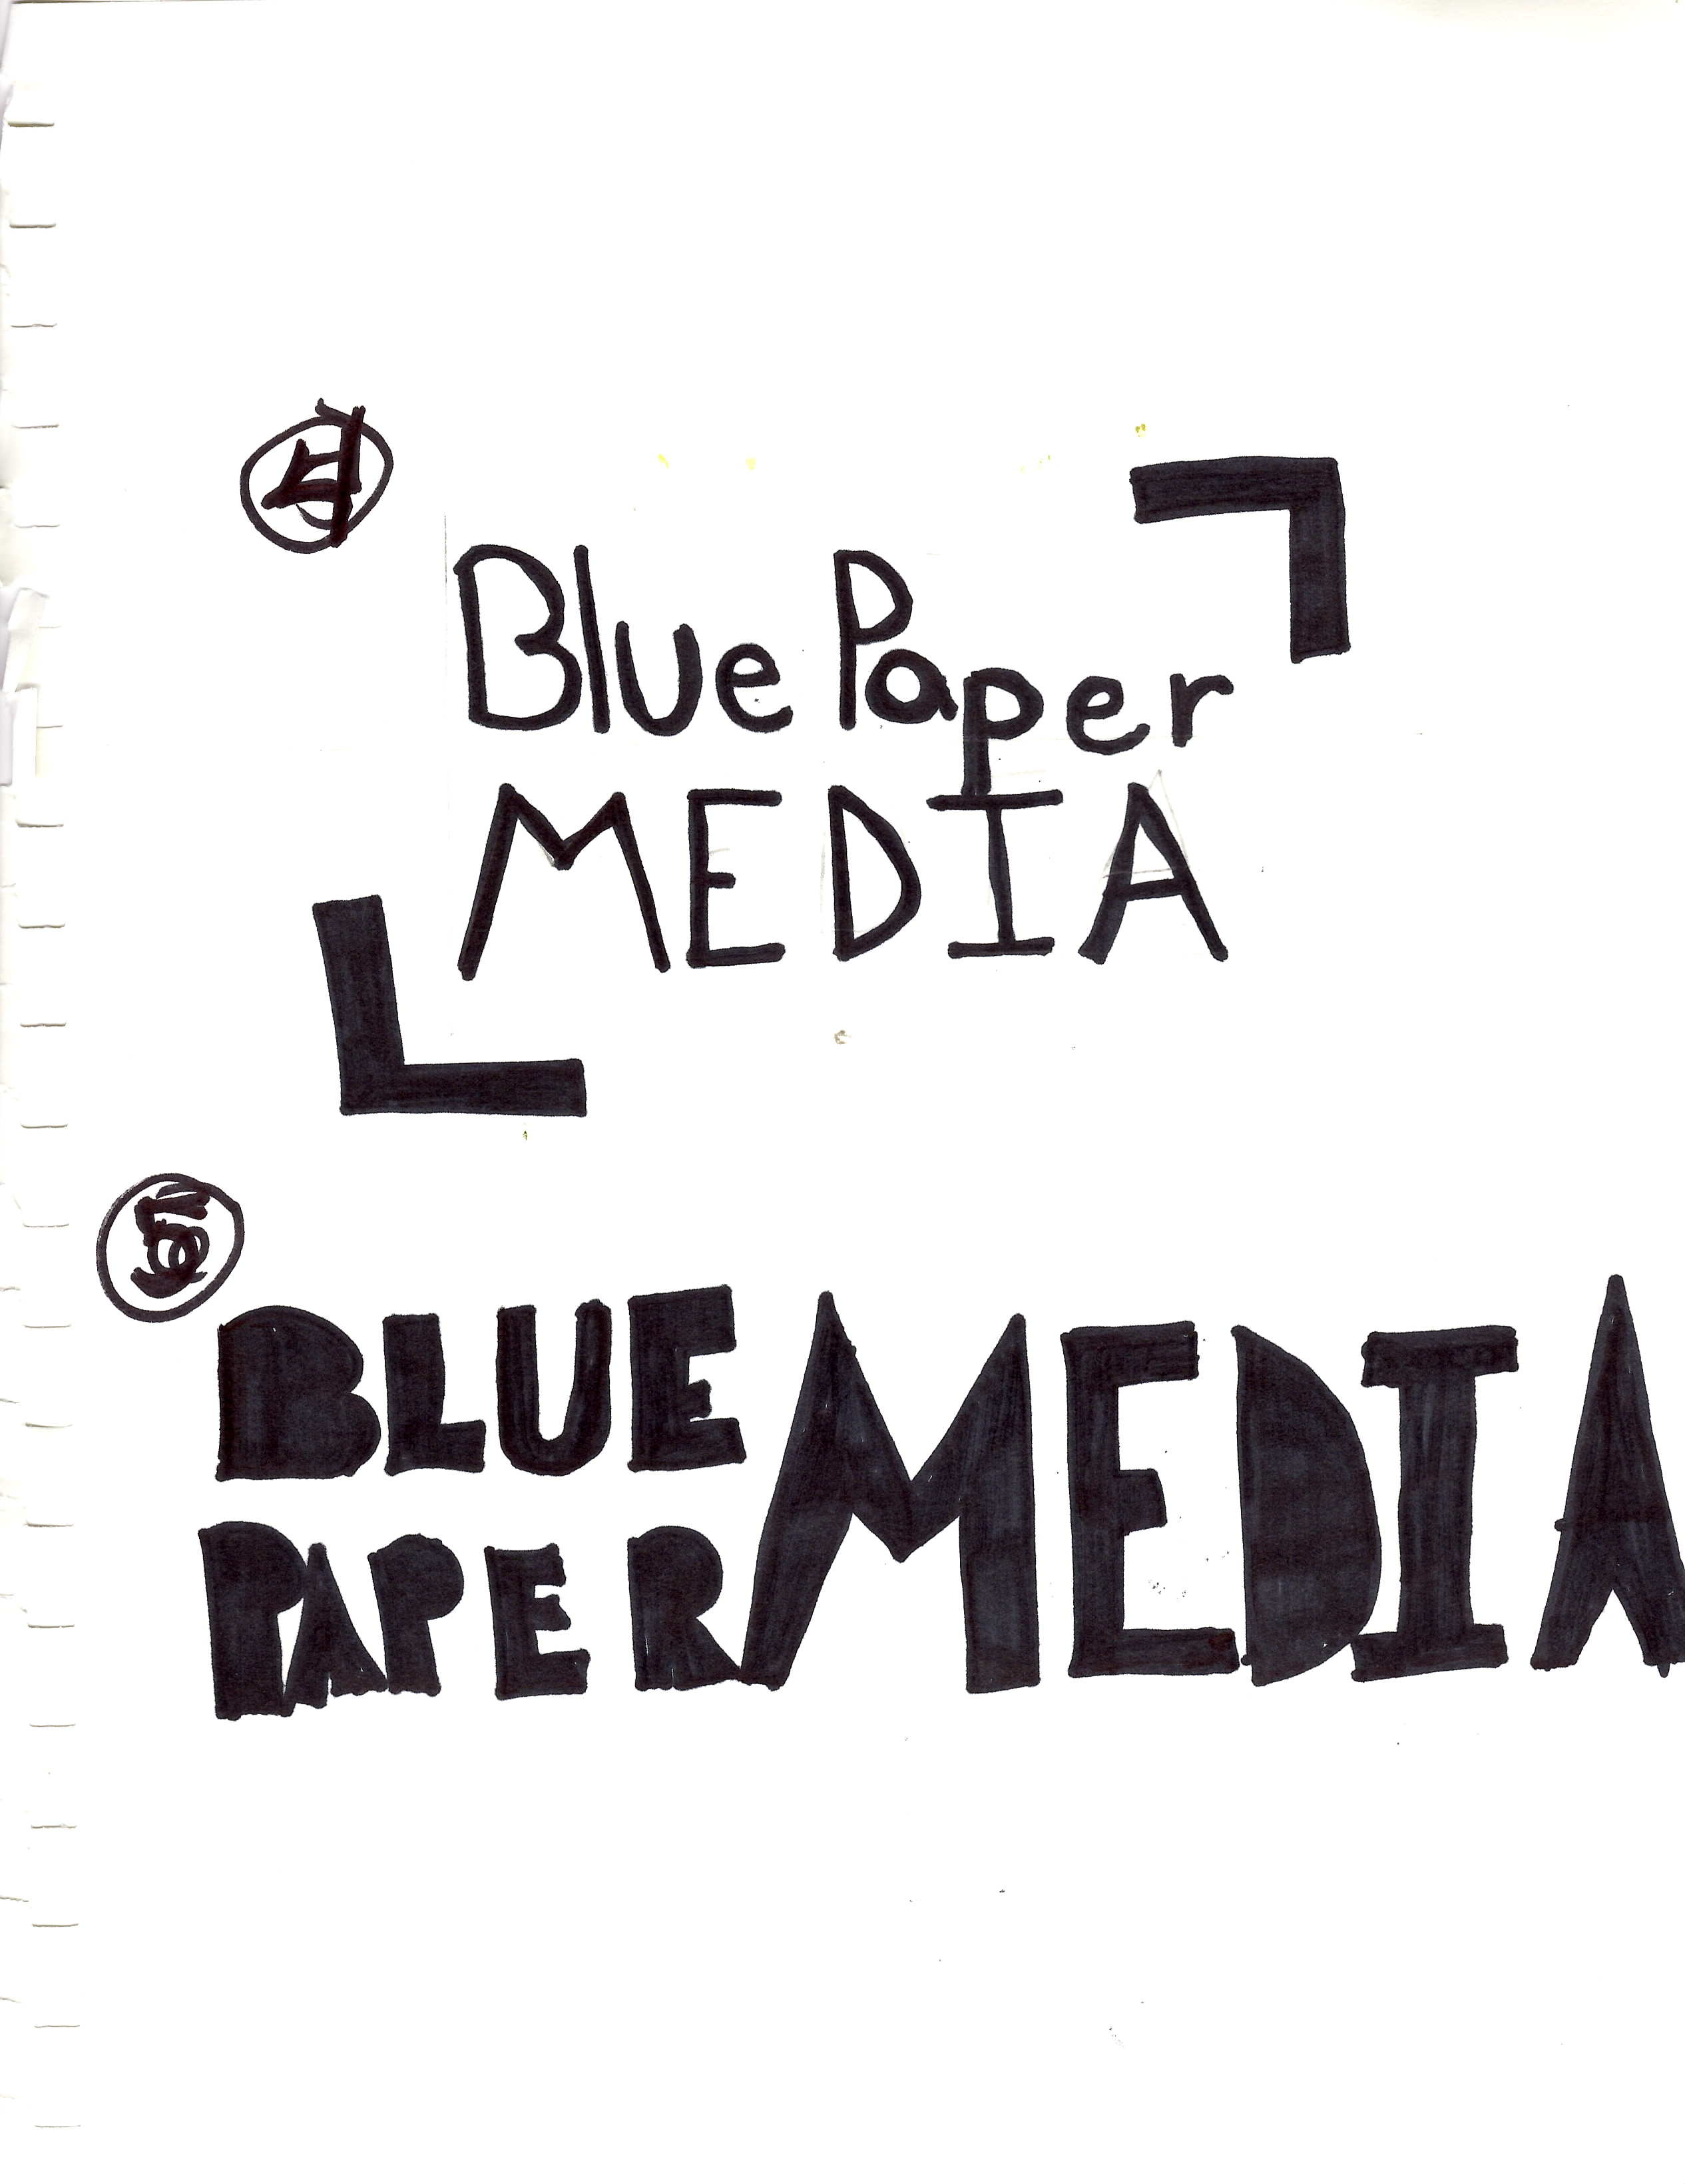 4
Blue Paper
MEDIA
5
BLUE
PAPER MEDIA